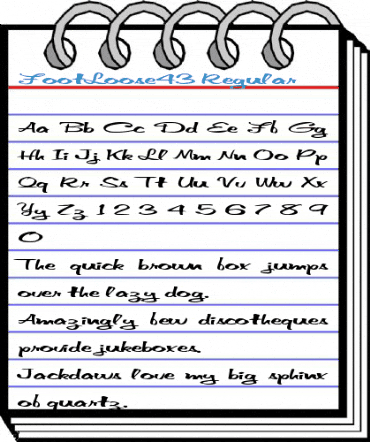 FootLoose43 Regular
Aa Bb Cc Dd Ee Ff Gg
Hh Ii Jj Kk Ll Mm Nn Oo Pp
Qq Rr Ss Tt Uu Vv Ww Xx
Yy Zz 1 2 3 4 5 6 7 8 9
0
The quick brown fox jumps
over the lazy dog.
Amazingly few discotheques
provide jukeboxes.
Jackdaws love my big sphinx
of quartz.